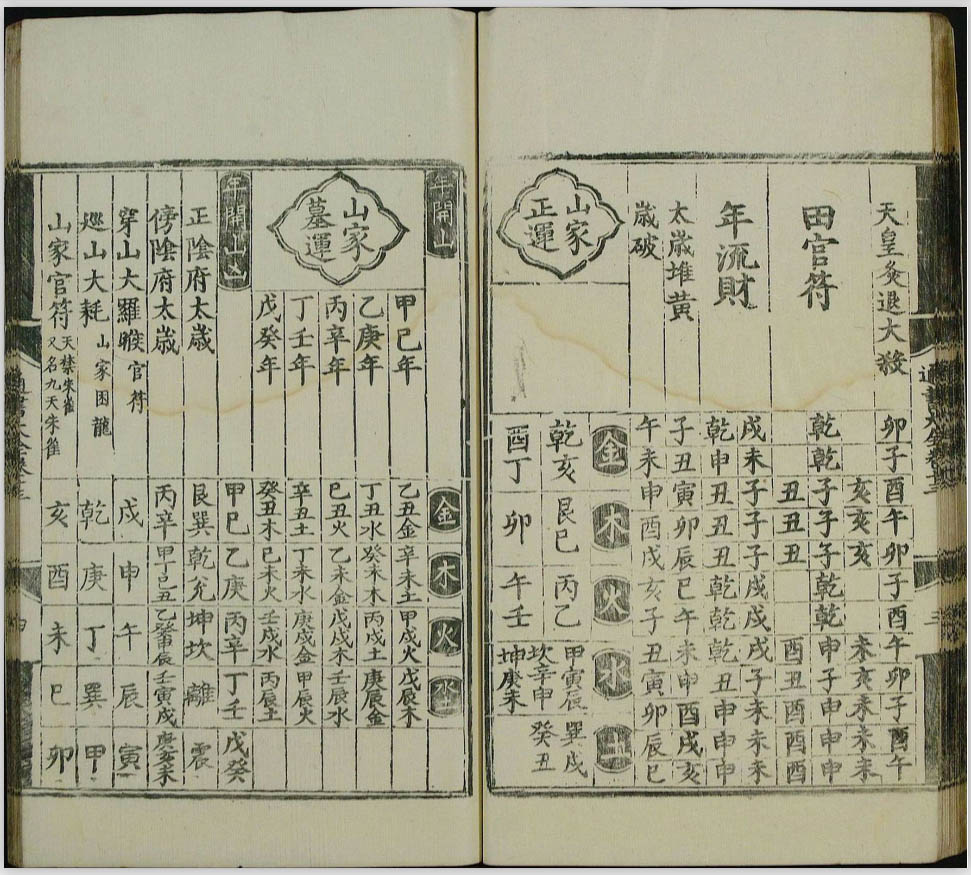 天皇灸退大殺 卯子酉午卯子酉午卯子酉午
田官符
亥亥亥未亥未未未
乾乾子子子乾乾申子申申申
丑丑丑酉丑酉酉酉
年流財
戌未子子子戌戌戌子未未未
乾申丑丑丑乾乾乾丑申申申
太歲堆黃 子丑寅卯辰巳午未申酉戌亥
歲破 午未申酉戌亥子丑寅卯辰巳
山家正運
金 木 火 水 土
乾亥 艮巳 丙乙 甲寅辰 巽戌
坎辛申 癸丑
酉丁 卯 午壬 坤庚未
年開山
金 木 火 水土
山家墓運
甲己年 乙丑金 辛未土 甲戌火 戊辰木
乙庚年 丁丑水 癸未木 丙戌土 庚辰金
丙辛年 己丑火 乙未金 戊戌木 壬辰水
丁壬年 辛丑土 丁未水 庚戌金 甲辰火
戊癸年 癸丑木 己未火 壬戌水 丙辰土
年開山凶 甲巳 乙庚 丙辛 丁壬 戊癸
正陰府太歲 艮巽 乾兌 坤坎 離 震
傍陰府太歲 丙辛 甲巳丑 乙癸申辰 壬寅戌 庚亥未
穿山大羅睺 官符 戌 申 午 辰 寅
巡山大耗 山家困龍 乾 庚 丁 巽 甲
山家官符 天禁朱雀 又名九天朱雀 亥 酉 未 巳 卯